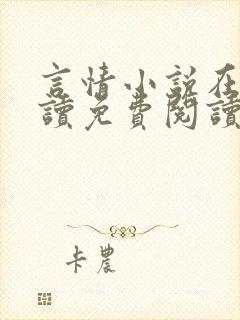 言情小說在
讀免費閱讀
卡農